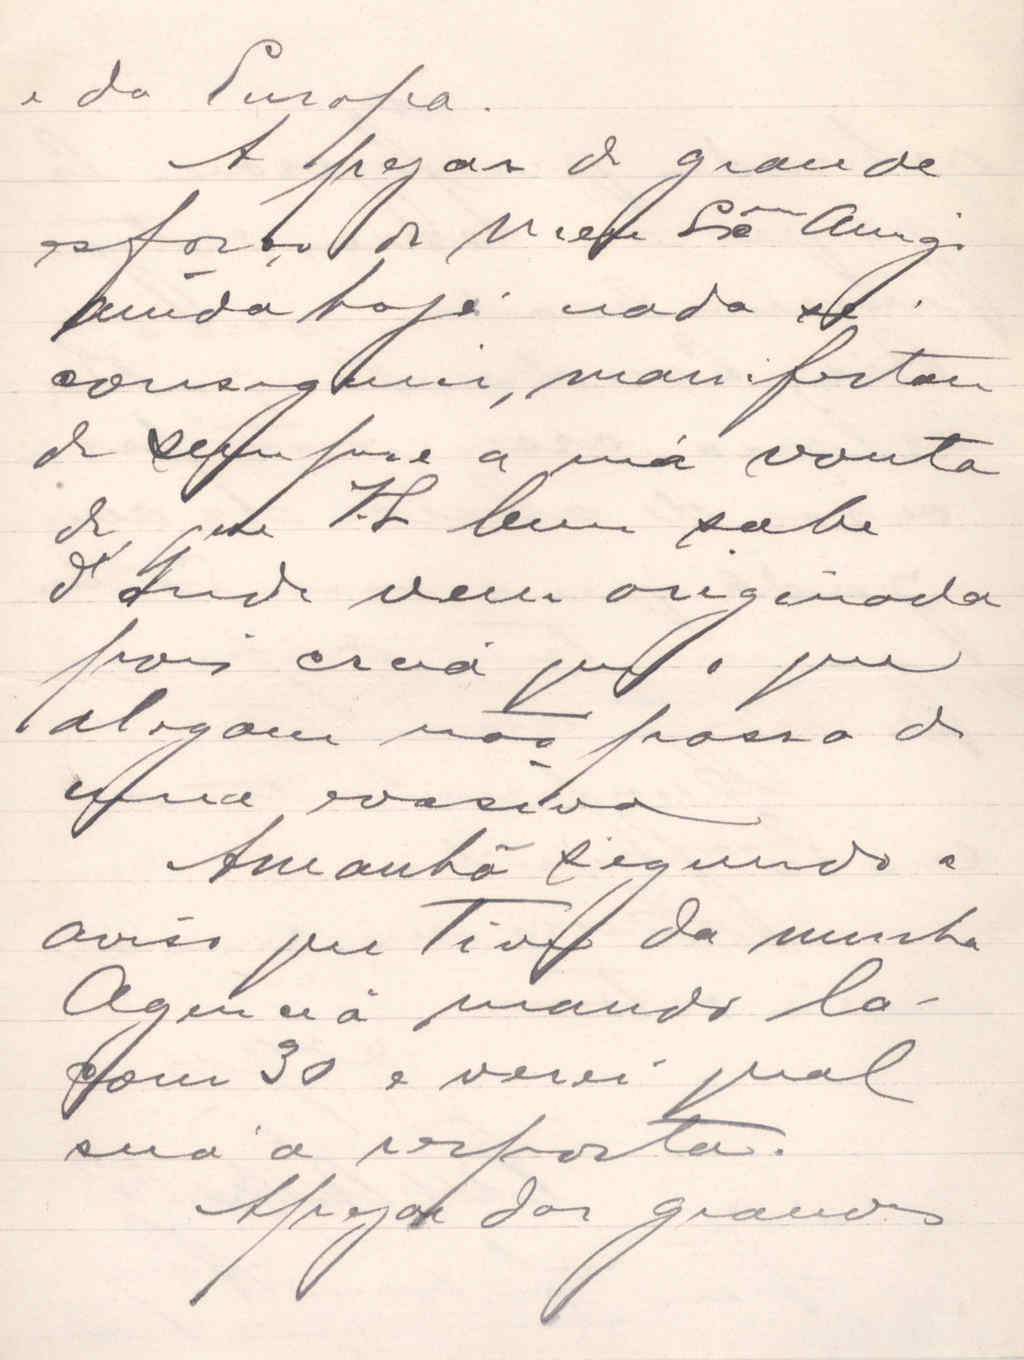 e da Europa.
A pezar de grande
esforço de meu Exmo Amigo
ainda hoje nada se
conseguiu, manifestan
do sempre a má vonta
de que V.S. bem sabe
d'onde vem originada
pois creia que o que
alegam não passa de
uma evasiva
Amanhã segundo o
aviso que tive da minha
Agencia mando la-
com 30 e verei qual
será a resposta.
Apezar dos grandes